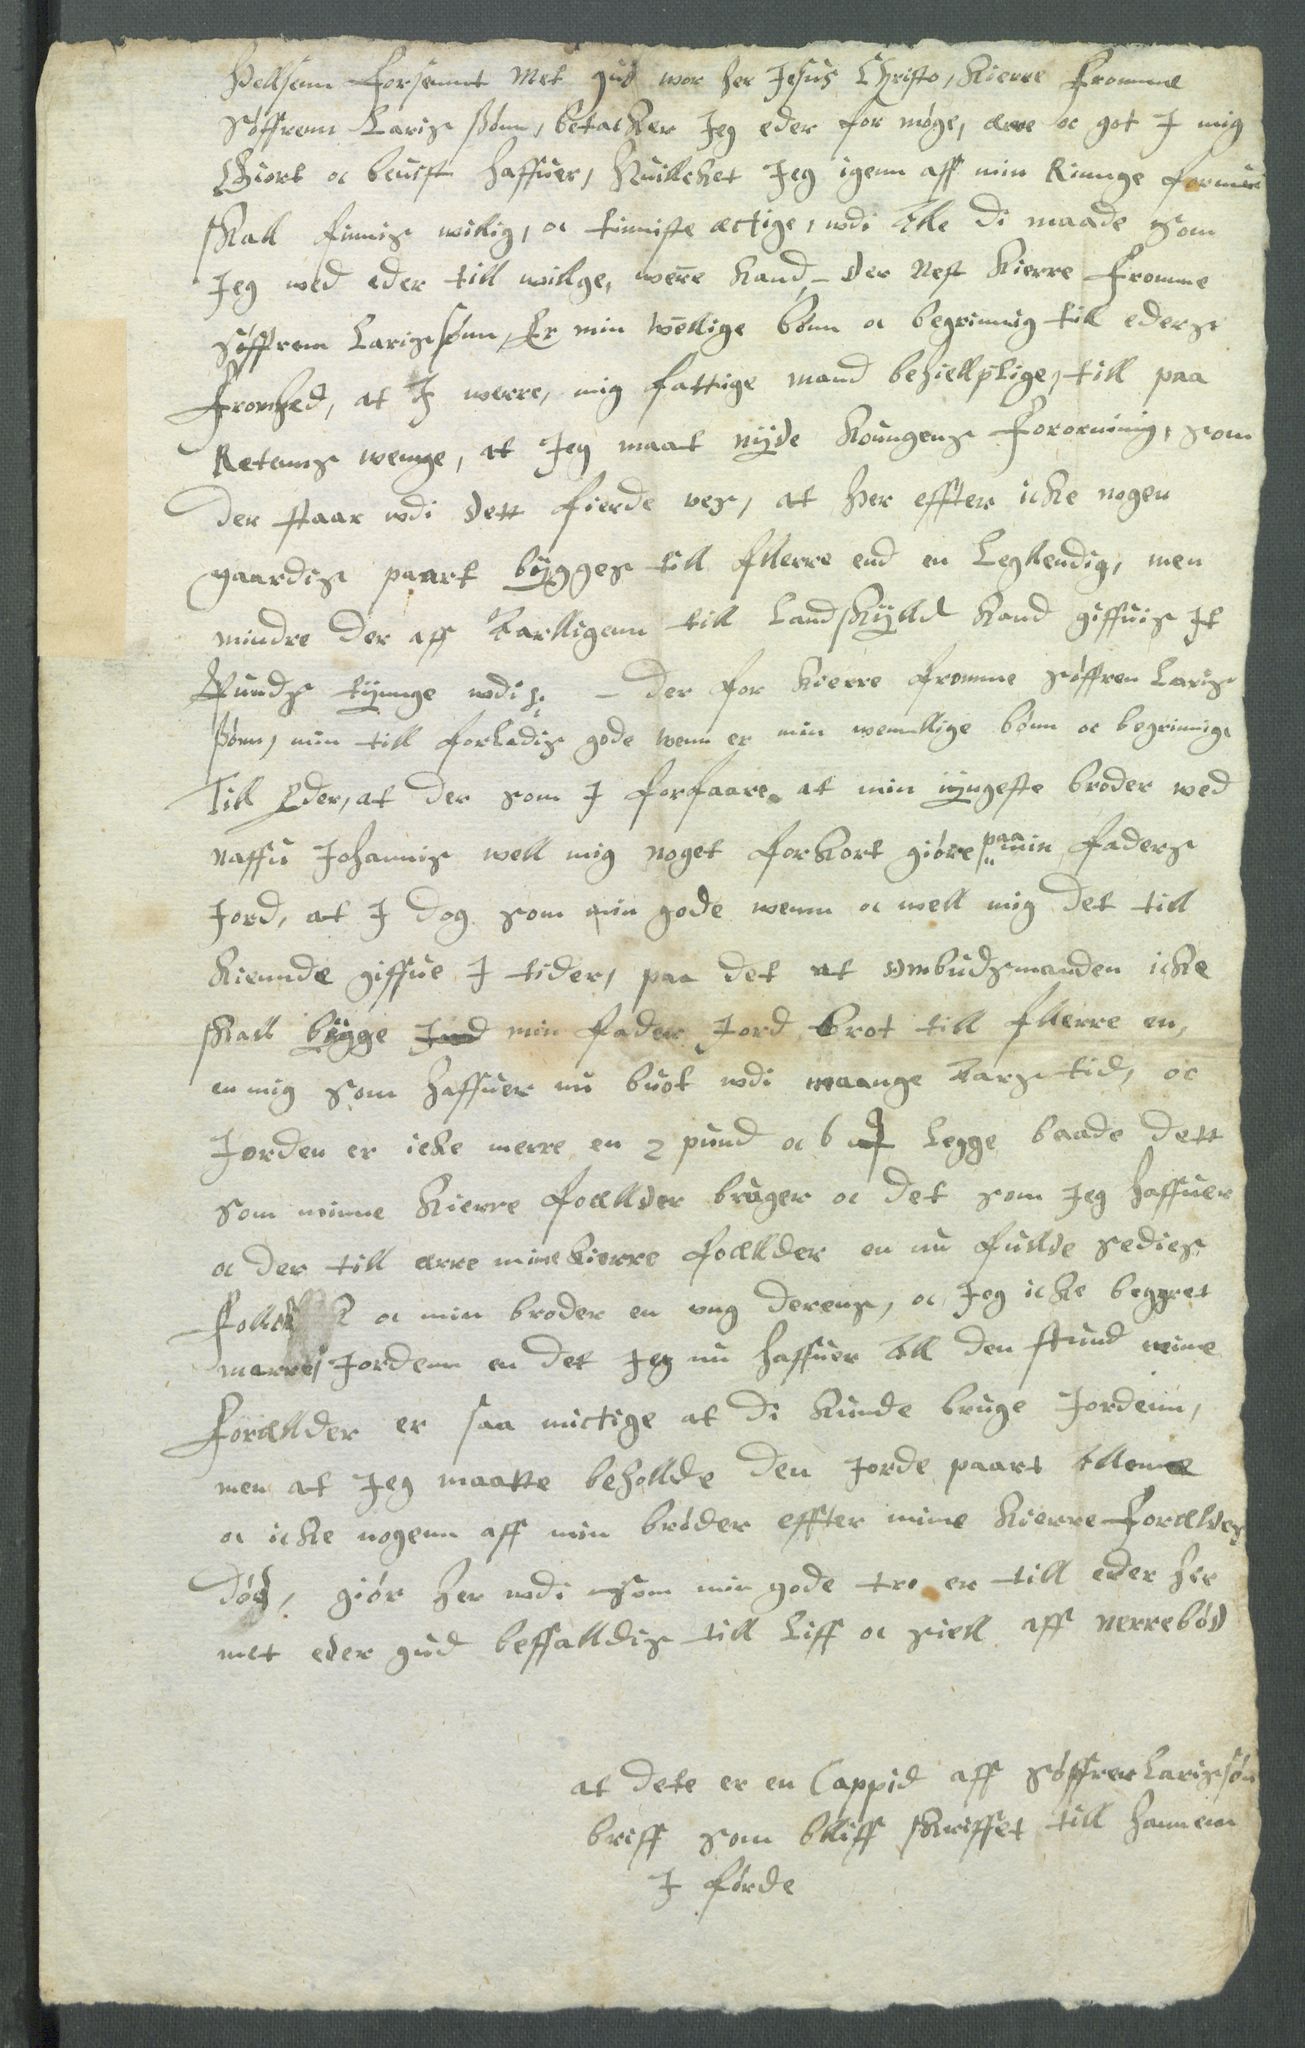 Hellsenn forsennt Met gud wor her Jesus Christo, Kierre Fromme
Søffrenn Laris sønn, betacker Jeg eder for møge, ære oc got I mig
Giort oc beuist haffuer, Huilcket Jeg igenn aff min Ringe formue
skall finnis willig, oc tinniste actige, wdi Alle di maade som
Jeg wed eder till willge, were kand, - der Nest Kierre Fromme
Søffrenn Larissønn, Er min wellige bønn oc begrinnig till eders
Fromhed, at I werre, mig fattige mand behiellplige, till paa
Retens wenge, at Jeg maat nyde Koungens Forornning, som
der staar wdi dett fierde , at her effter icke nogen
gaardis paart bygges till fllerre end en Legllendig, men
mindre der aff Aarlligenn till Landskylld kand giffuis It
Punds tynge wdi, - der for Kierre fromme Søffren Laris
sønn, min till forladis gode wenn er min wennllige bønn oc begrinnige
Till Eder, at der som I forfaare at min yngeste broder wed
naffn Johannis well mig noget forkort giøre paa min faders
Jord, at I dog som min gode wenn oc well mig det till
kiennde giffue I tider, paa det at ombudsmanden icke
skall bygge min fader Jord brot till fllerre en,
en mig som haffuer nu buot wdi maange Aars tid, oc
Jorden er icke merre en 2 pund oc 6 Legge baade dett
som minne Kierre foællder bruger oc det som Jeg haffuer
oc der till ære mine kierre foællder en nu fullde sedies
Follck oc min broder en ung derens, oc Jeg icke beggret
merre Jordenn en det Jeg nu haffuer All den stund mine
Forællder er saa mictige at di kunde bruge Jordenn,
men at Jeg maatte behollde den Jorde paart Allenne
oc icke nogenn aff min brøder effter mine Kierre Forælders
død, giør her wdi som min gode tro er till eder her
met eder gud beffalldis till Liff oc siell aff nerrebød
at dete er en Cappid aff Søffren Larissøn
briff som bliff skriffet till hannem
I førde